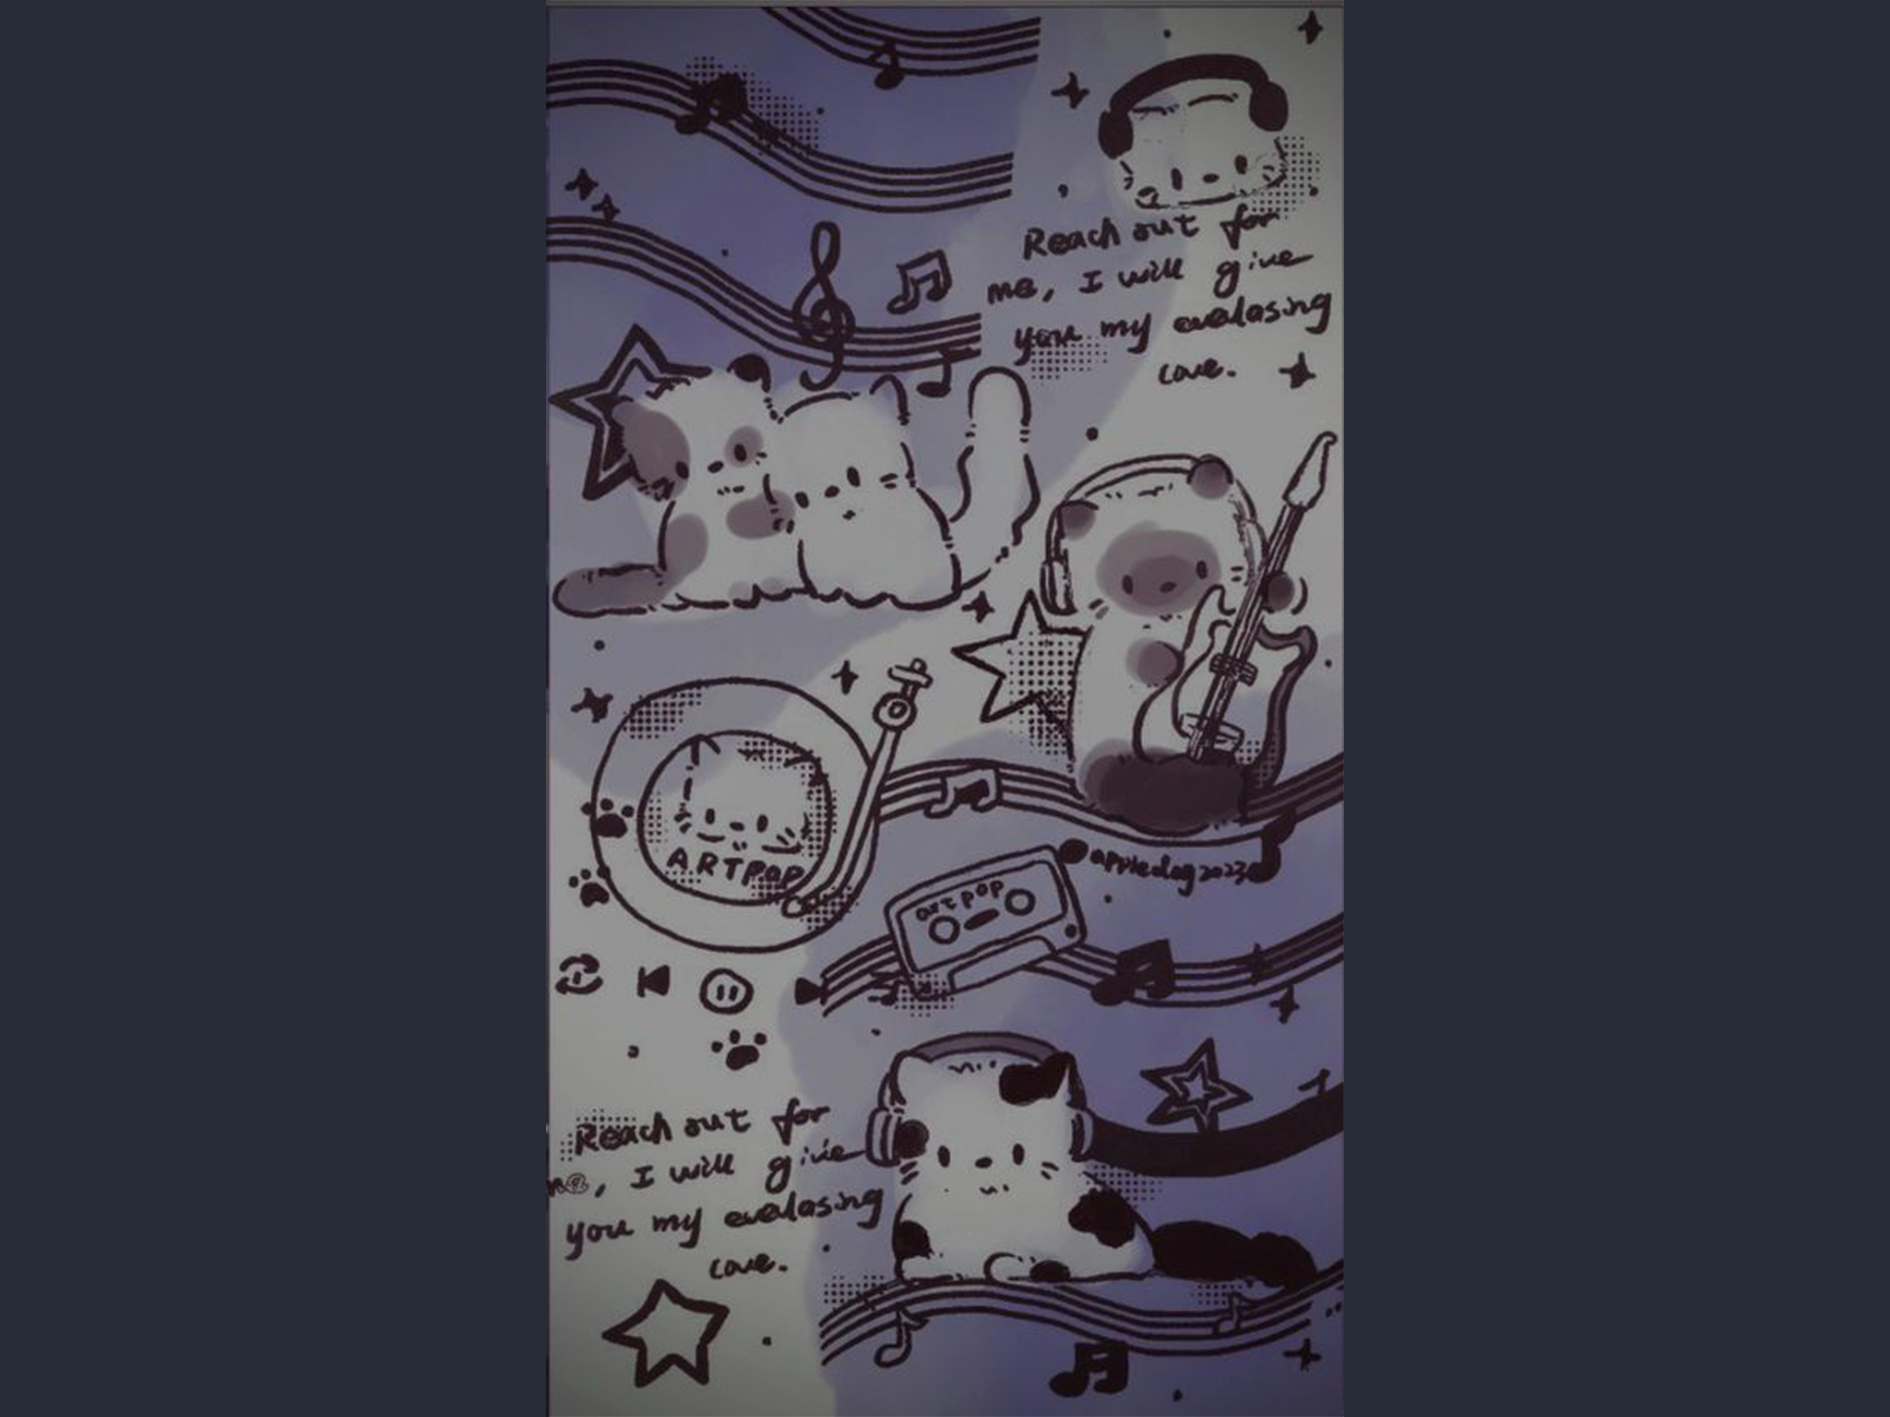 Reach out for
me, I will give
you my evelasing
Love.
ARTPOP
@appledog2023
art pop
Reach out for
me, I will give
you my evelasing
Love.